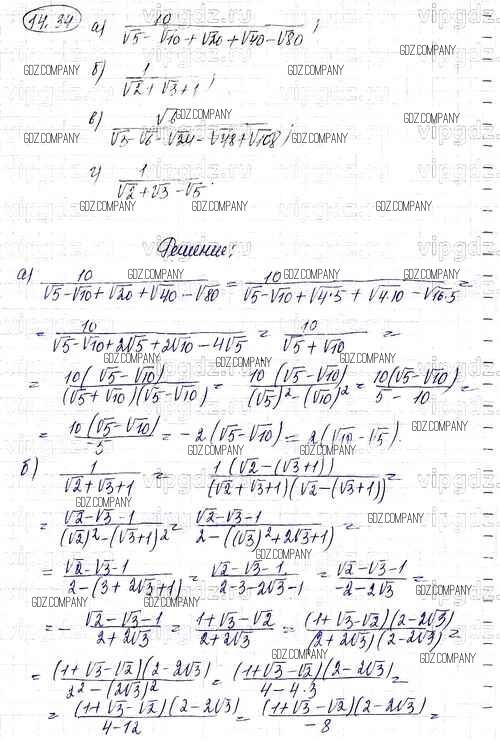 14.34 а) 10/(√5 - √10 + √20 + √40 - √80);
б) 1/(√2 + √3 + 1);
в) √6/(√3 - √6 - √24 - √48 + √108);
г) 1/(√2 + √3 - √5).
Решение:
а) 10/(√5 - √10 + √20 + √40 - √80) = 10/(√5 - √10 + √(4·5) + √(4·10) - √(16·5)) =
= 10/(√5 - √10 + 2√5 + 2√10 - 4√5) = 10/(√5 + √10) =
= 10(√5 - √10)/((√5 + √10)(√5 - √10)) = 10(√5 - √10)/((√5)² - (√10)²) = 10(√5 - √10)/(5 - 10) =
= 10(√5 - √10)/5 = -2(√5 - √10) = 2(√10 - √5).
б) 1/(√2 + √3 + 1) = 1(√2 - (√3 + 1))/((√2 + √3 + 1)(√2 - (√3 + 1))) =
= (√2 - √3 - 1)/((√2)² - (√3 + 1)²) = (√2 - √3 - 1)/(2 - ((√3)² + 2√3 + 1)) =
= (√2 - √3 - 1)/(2 - (3 + 2√3 + 1)) = (√2 - √3 - 1)/(2 - 3 - 2√3 - 1) = (√2 - √3 - 1)/(-2 - 2√3) =
= - (√2 - √3 - 1)/(2 + 2√3) = (1 + √3 - √2)/(2 + 2√3) = (1 + √3 - √2)(2 - 2√3)/((2 + 2√3)(2 - 2√3)) =
= (1 + √3 - √2)(2 - 2√3)/(2² - (2√3)²) = (1 + √3 - √2)(2 - 2√3)/(4 - 4·3) =
= (1 + √3 - √2)(2 - 2√3)/(4 - 12) = (1 + √3 - √2)(2 - 2√3)/(-8) =
GDZ.COMPANY
vipgdz.ru